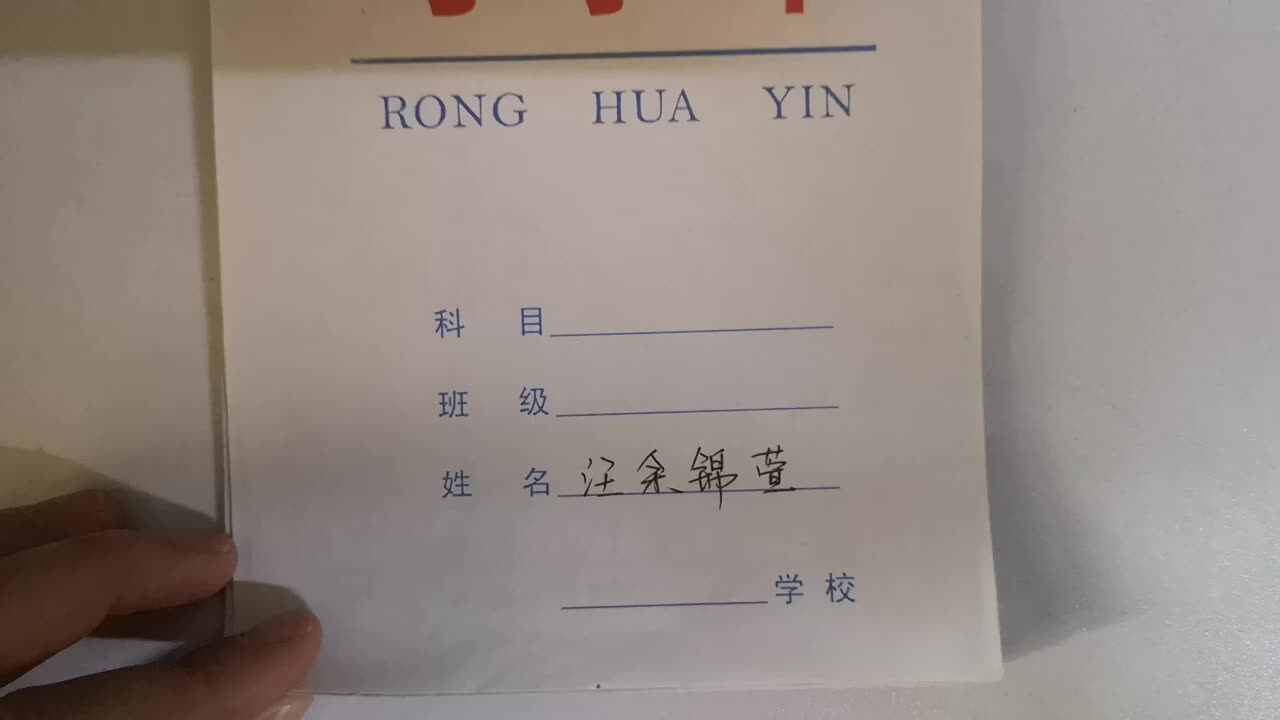 RONG HUA YIN
科 目
班 级
姓 名 汪余锦萱
学 校